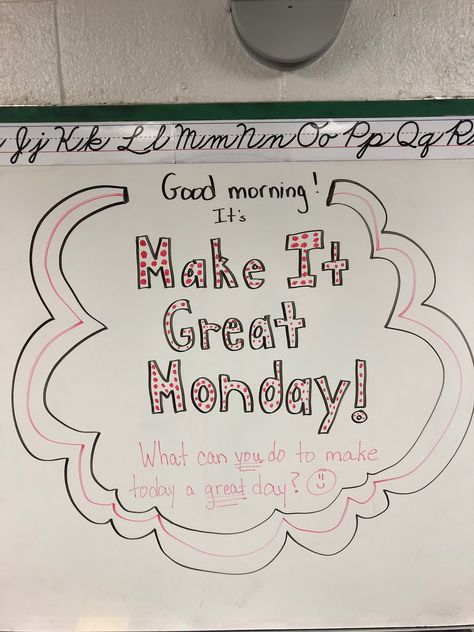 Jj Kk Ll Mm Nn Oo Pp Qq R
Good morning!
It's
Make It
Great
Monday!
What can you do to make
today a great day?